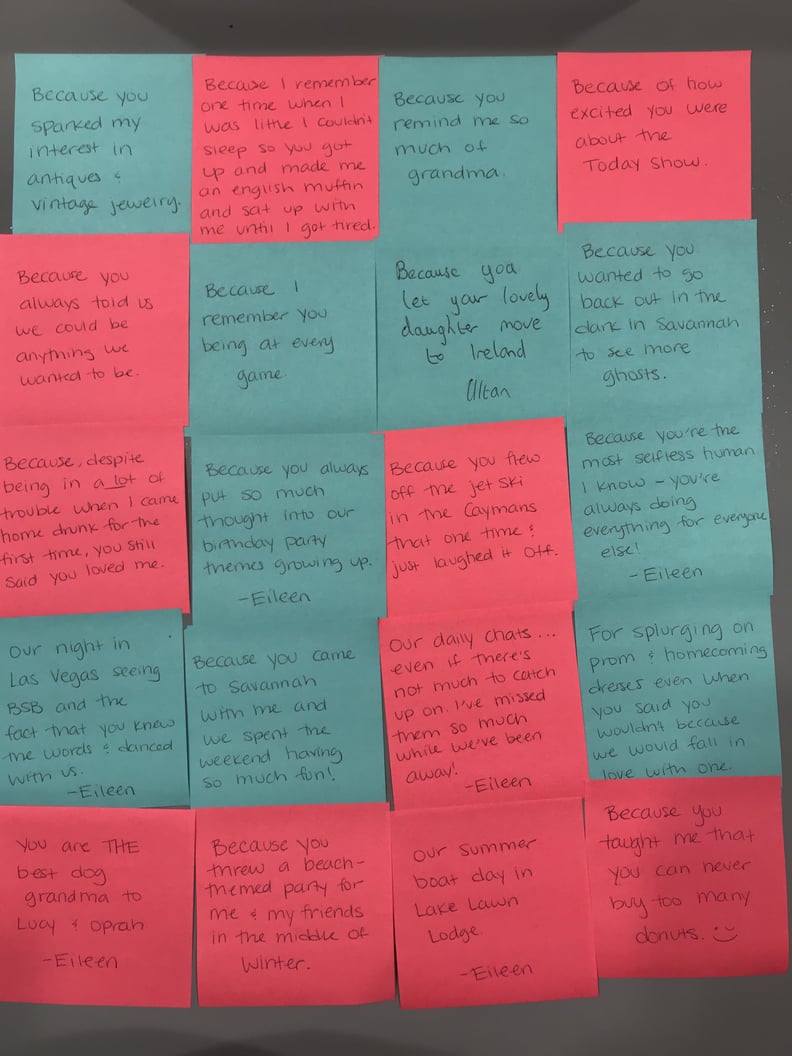 Because you
sparked my
interest in
antiques &
vintage jewelry.
Because I remember
one time when I
was little I couldn't
sleep so you got
up and made me
an english muffin
and sat up with
me until I got tired.
Because you
remind me so
much of
grandma.
Because of how
excited you were
about the
Today Show.
Because you
always told us
we could be
anything we
wanted to be.
Because I
remember you
being at every
game.
Because you
let your lovely
daughter move
to Ireland
Ultan
Because you
wanted to go
back out in the
dark in Savannah
to see more
ghosts.
Because, despite
being in a lot of
trouble when I came
home drunk for the
first time, you still
said you loved me.
Because you always
put so much
thought into our
birthday party
themes growing up.
-Eileen
Because you flew
off the jet ski
in the Caymans
that one time &
just laughed it off.
Because you're the
most selfless human
I know - you're
always doing
everything for everyone
else!
-Eileen
Our night in
Las Vegas seeing
BSB and the
fact that you knew
the words & danced
with us.
-Eileen
Because you came
to Savannah
with me and
we spent the
weekend having
so much fun!
Our daily chats...
even if there's
not much to catch
up on. I've missed
them so much
while we've been
away!
-Eileen
For splurging on
prom & homecoming
dresses even when
you said you
wouldn't because
we would fall in
love with one.
You are THE
best dog
grandma to
Lucy & Oprah
-Eileen
Because you
threw a beach-
themed party for
me & my friends
in the middle of
winter.
Our summer
boat day in
Lake Lawn
Lodge.
-Eileen
Because you
taught me that
you can never
buy too many
donuts. :)